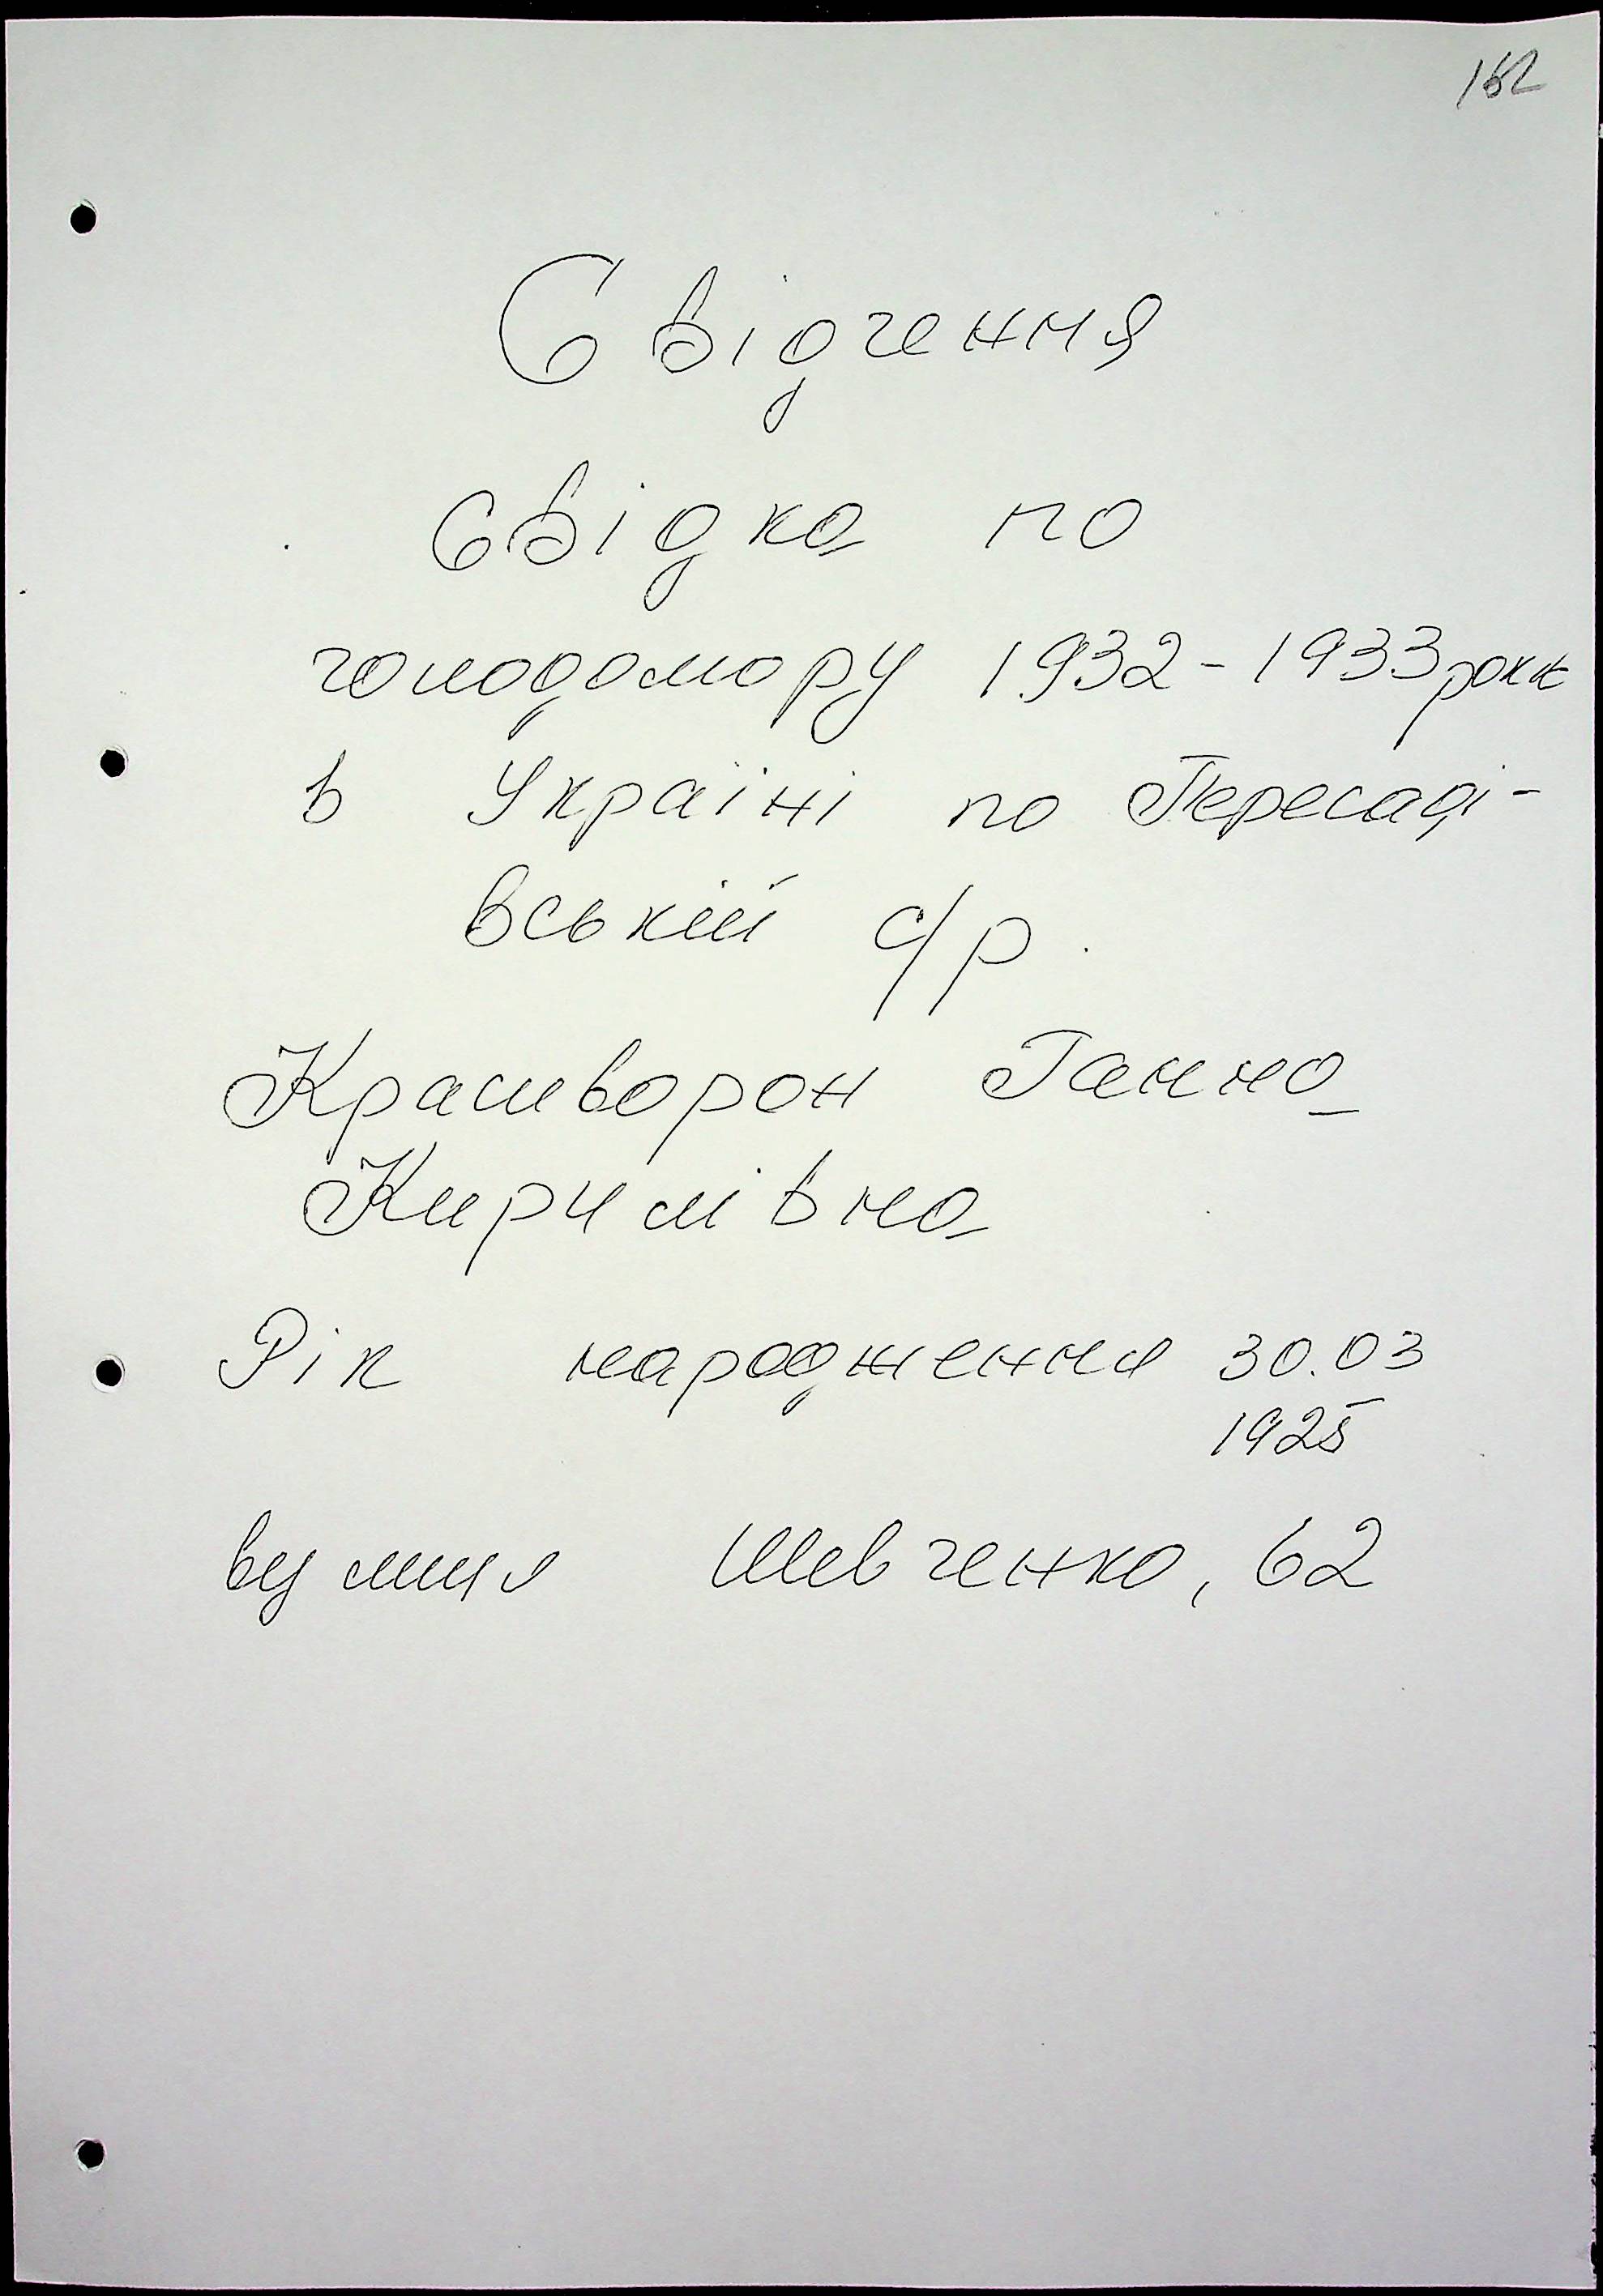 162
Свідчення
свідка по
голодомору 1932-1933 роки
в Україні по Пересаді-
вській с/р.
Красиворон Ганна
Кирилівна
Рік народження 30.03
1925
вулиця Шевченко, 62